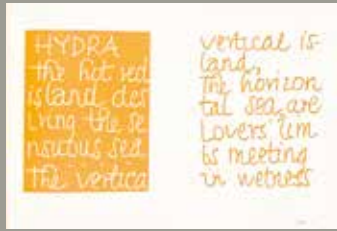 HYDRA
the hot red
island des
iring the se
nsuous sea
the vertica
vertical is-
land,
the horizon
tal sea, are
lovers' lim
bs meeting
in wetness